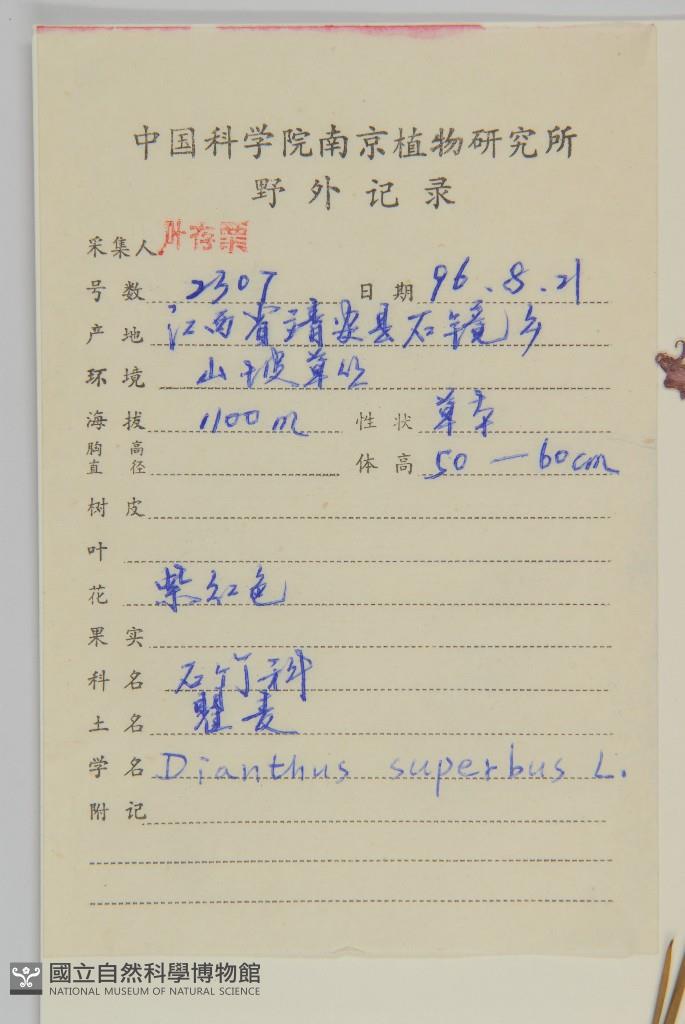 中国科学院南京植物研究所
野外记录
采集人 叶存粟
号数 2307 日期 96.8.21
产地 江西省靖安县石镜乡
环境 山坡草丛
海拔 1100m 性状 草本
胸高直径 体高 50—60cm
树皮
叶
花 紫红色
果实
科名 石竹科
土名 瞿麦
学名 Dianthus superbus L.
附记
國立自然科學博物館
NATIONAL MUSEUM OF NATURAL SCIENCE